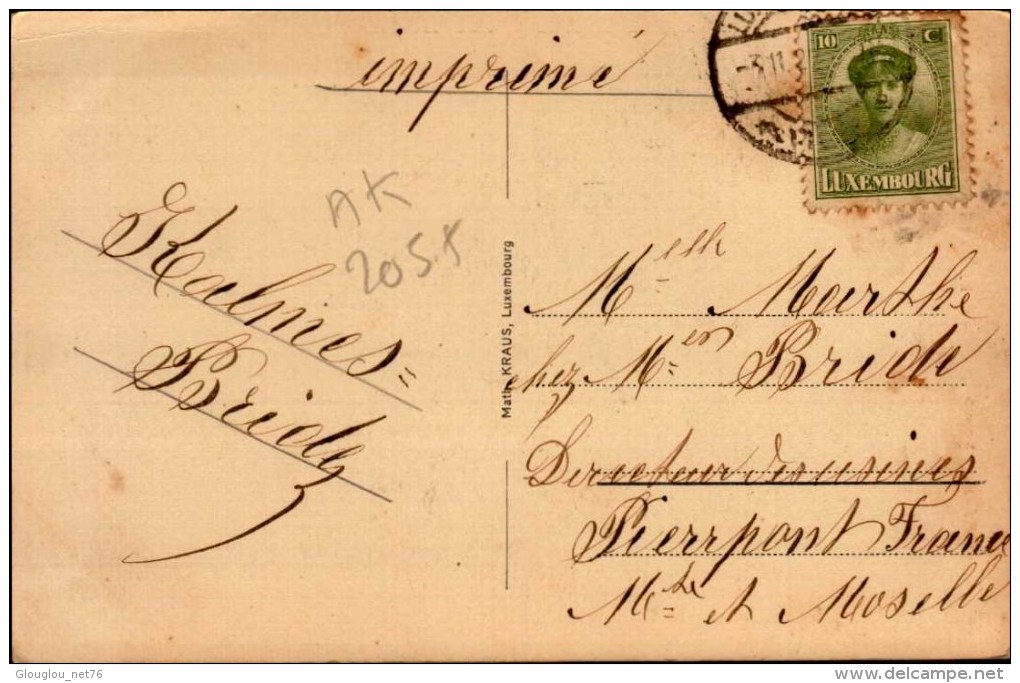 imprimé
10 C
LUXEMBOURG
-3.11.3
AK
2055
Kalmes=
Bridy
Math. KRAUS, Luxembourg
Melle Marthe
chez Mer Bride
Directeur des usines
Pierrpont France
Mthe et Moselle
Glouglou_net76
delcampe.net